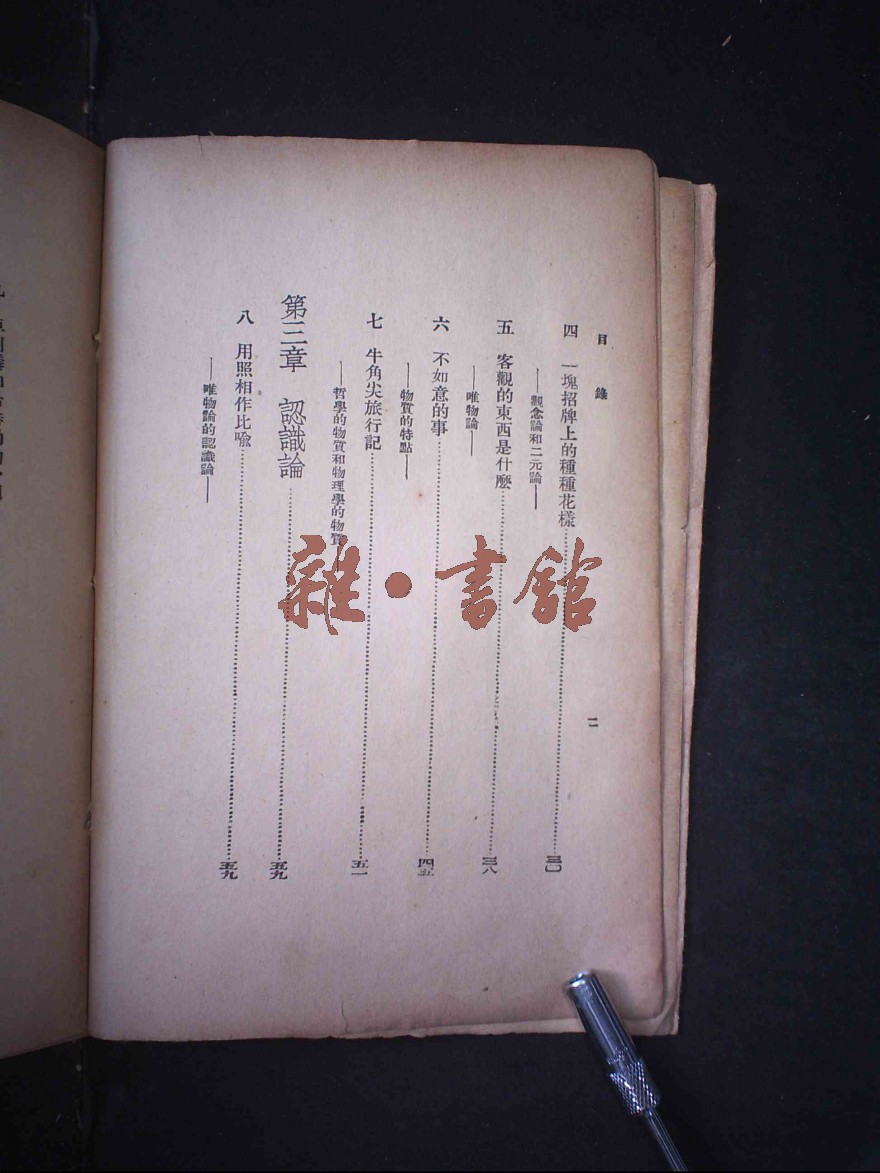 目錄
二
四 一塊招牌上的種種花樣……三〇
——觀念論和二元論——
五 客觀的東西是什麼……三八
——唯物論——
六 不如意的事……四五
——物質的特點——
七 牛角尖旅行記……五一
——哲學的物質和物理學的物質
第三章 認識論……五九
八 用照相作比喩……五九
——唯物論的認識論——
雜•書館